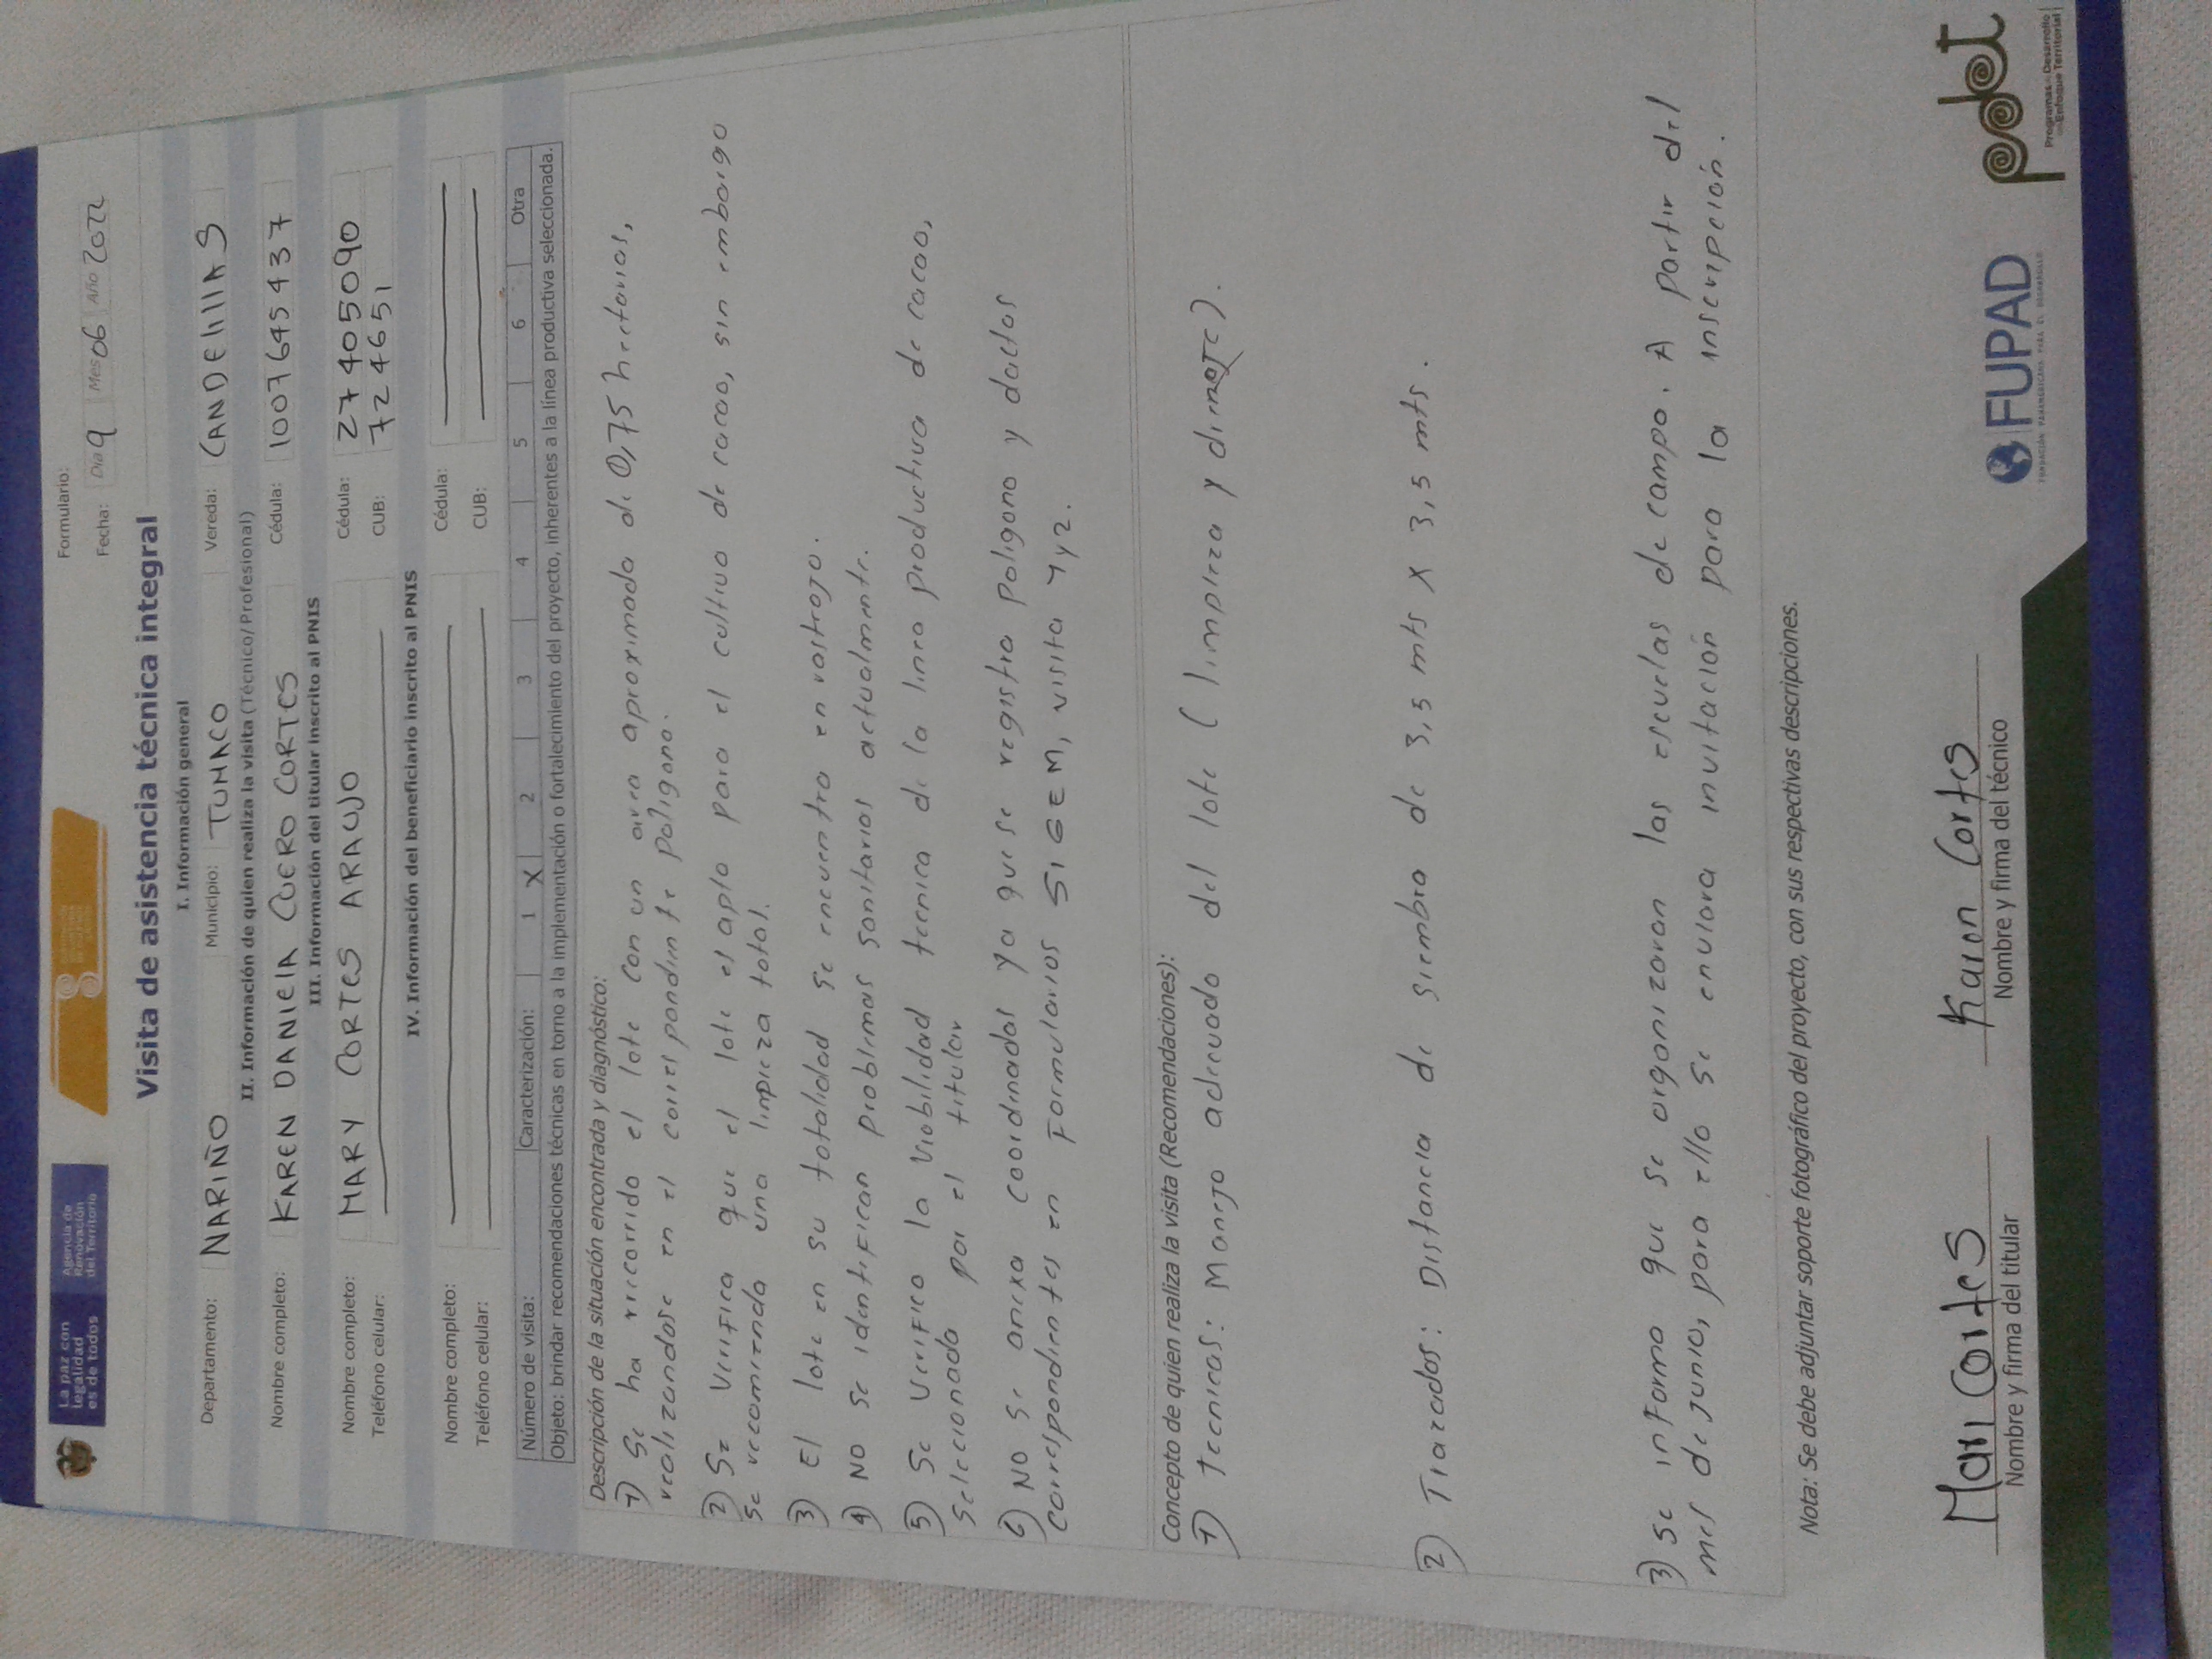 La paz con
legalidad
es de todos
Agencia de
Renovación
del Territorio
Formulario:
Fecha: Día 9 Mes 06 Año 2022
Visita de asistencia técnica integral
I. Información general
Departamento: NARIÑO Municipio: TUMACO Vereda: CANDElillAS
II. Información de quien realiza la visita (Técnico/ Profesional)
Nombre completo: KAREN DANIElA CUERO CORTES Cédula: 1007645437
III. Información del titular inscrito al PNIS
Nombre completo: MARY CORTES ARAUJO Cédula: 27405090
Teléfono celular: CUB: 724651
IV. Información del beneficiario inscrito al PNIS
Nombre completo: Cédula:
Teléfono celular: CUB:
Número de visita: Caracterización: 1 X 2 3 4 5 6 Otra
Objeto: brindar recomendaciones técnicas en torno a la implementación o fortalecimiento del proyecto, inherentes a la línea productiva seleccionada.
Descripción de la situación encontrada y diagnóstico:
1) Se ha recorrido el lote con un area aproximada de 0,75 hectarias,
realizandose en el correspondinte poligano.
2) Se verifica que el lote el apto para el cultivo de cacao, sin embargo
se recomienda una limpieza total.
3) El lote en su totalidad se encuentra en rastrojo.
4) NO se identifican problemas sanitarios actualmente.
5) Se verifico la viabilidad tecnica de la linea productiva de cacao,
seleccionada por el titular
6) NO se anexa coordinadas ya que se registra poligono y dactos
correspondientes en formularios SIGEM, visita 1 y 2.
Concepto de quien realiza la visita (Recomendaciones):
1) Tecnicas: Manejo adecuado del lote (limpieza y
2) Trazados: Distancia de siembra de 3,5 mts X 3,5 mts.
3) Se informo que se organizaran las escuelas de campo. A partir del
mes de junio, para ello se enviara invitación para la inscripción.
Nota: Se debe adjuntar soporte fotográfico del proyecto, con sus respectivas descripciones.
Mari Cortes
Nombre y firma del titular
Karen Cortes
Nombre y firma del técnico
FUPAD
FUNDACIÓN PANAMERICANA PARA EL DESARROLLO
pdet
Programas de Desarrollo
con Enfoque Territorial